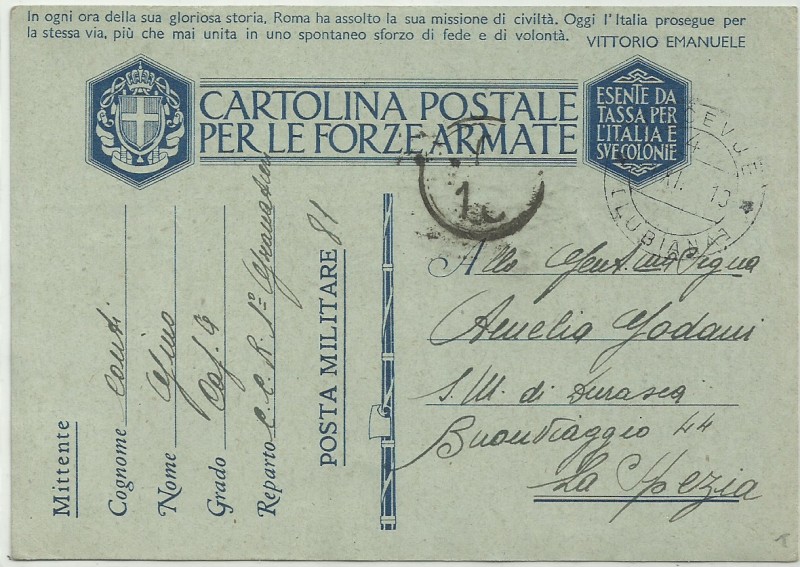 In ogni ora della sua gloriosa storia, Roma ha assolto la sua missione di civiltà. Oggi l'Italia prosegue per
la stessa via, più che mai unita in uno spontaneo sforzo di fede e di volontà. VITTORIO EMANUELE
CARTOLINA POSTALE
PER LE FORZE ARMATE
ESENTE DA
TASSA PER
L'ITALIA E
SVE COLONIE
XI. 13
(LUBIANA)
Mittente
Cognome Conti
Nome Gino
Grado
Reparto C. C. R. 1º Granatieri
POSTA MILITARE 81
Alla Gent.ma Signa
Amelia Godani
S. M. di Durasca
Buonviaggio 44
La Spezia